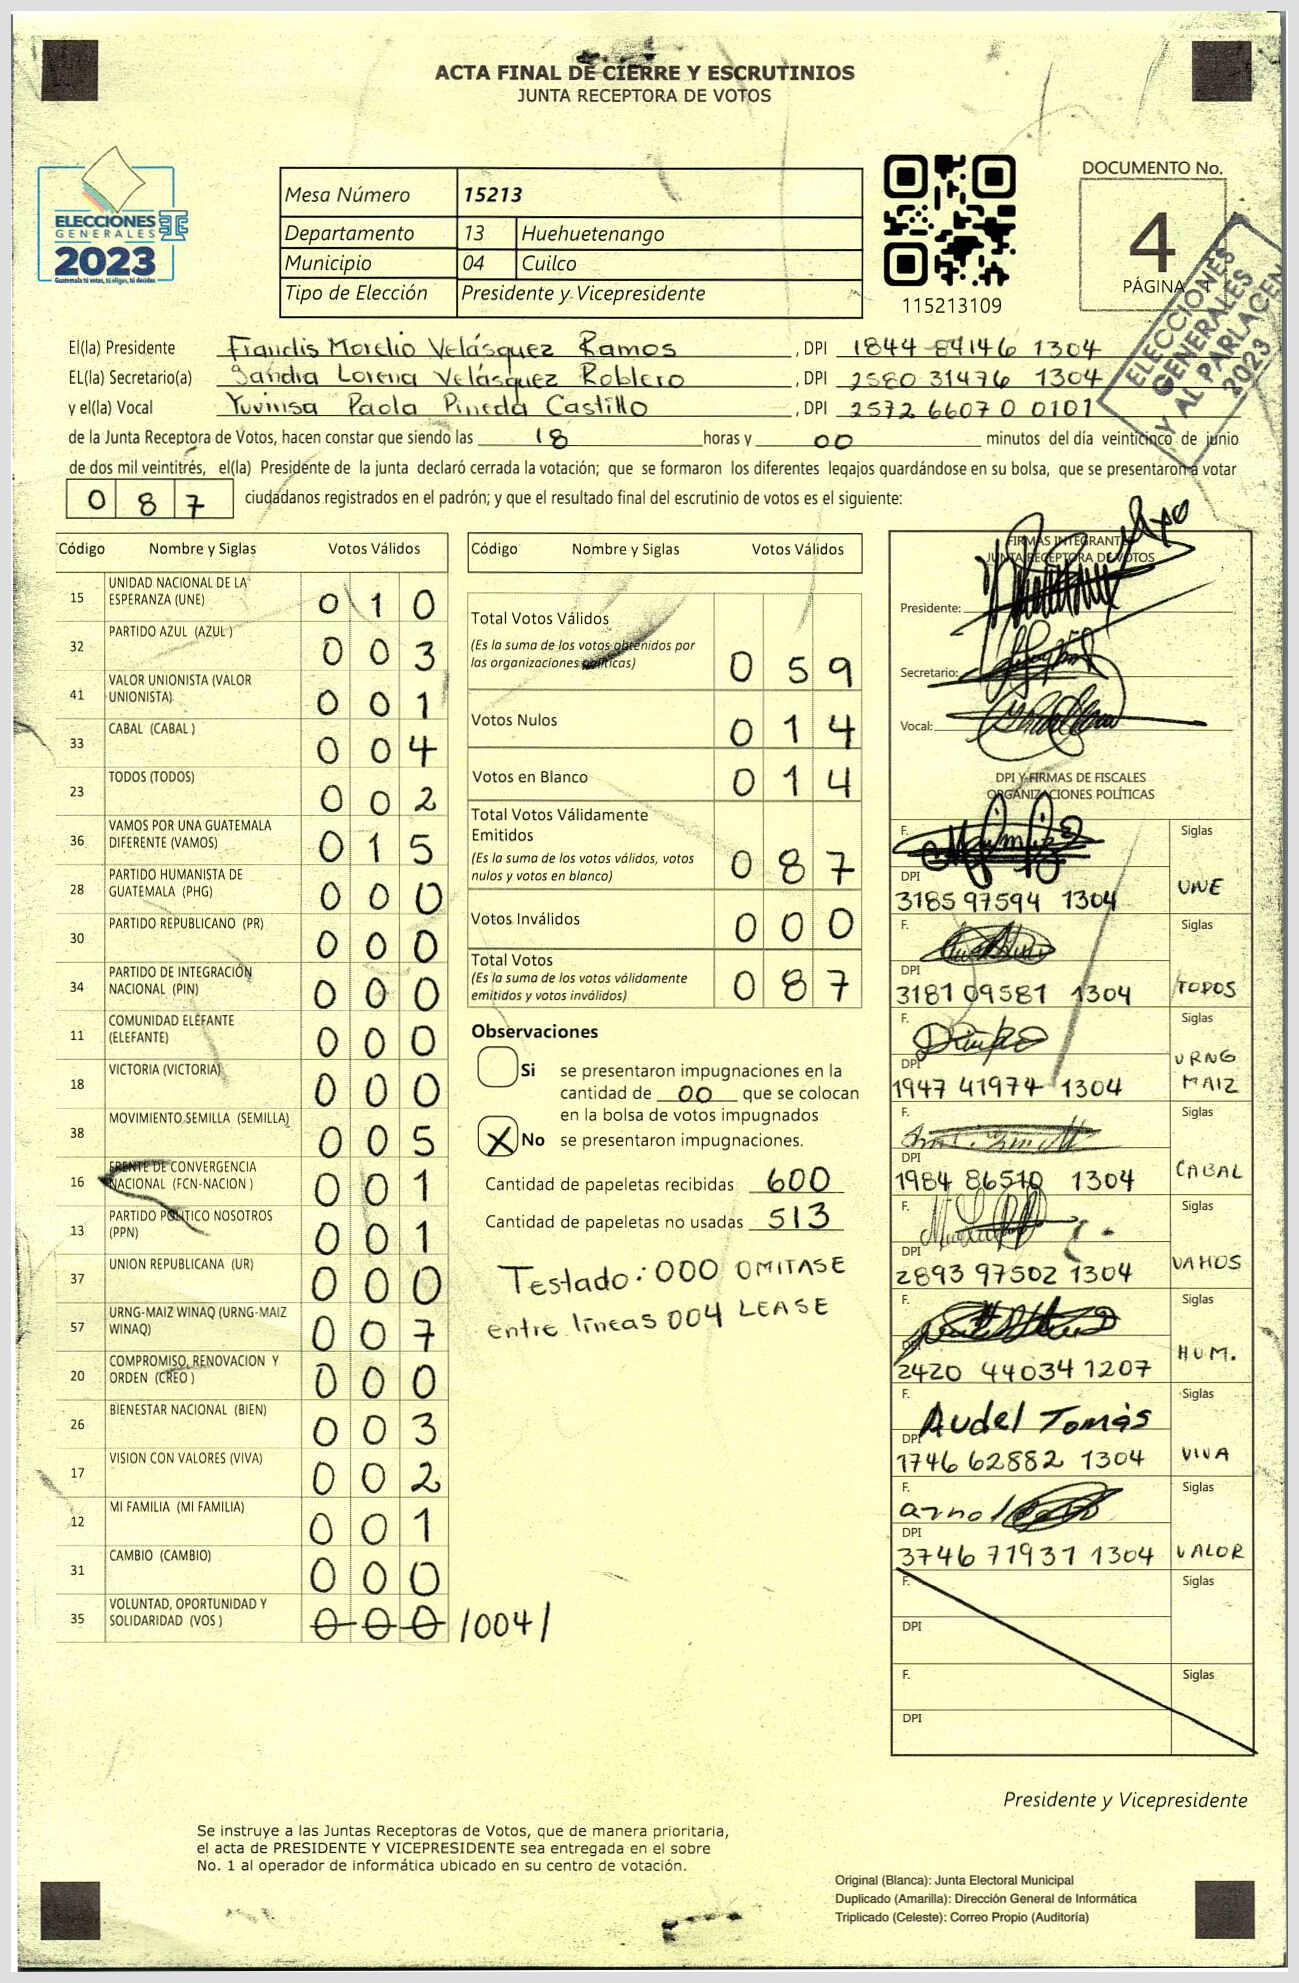 ACTA FINAL DE CIERRE Y ESCRUTINIOS
JUNTA RECEPTORA DE VOTOS
ELECCIONES
GENERALES
2023
Guatemala tú votas, tú eliges, tú decides
Mesa Número 15213
Departamento 13 Huehuetenango
Municipio 04 Cuilco
Tipo de Elección Presidente y Vicepresidente
115213109
DOCUMENTO No.
4
PÁGINA 1
ELECCIONES
GENERALES
Y AL PARLACEN
2023
El(la) Presidente Fraudis Morelio Velásquez Ramos , DPI 1844 84146 1304
EL(la) Secretario(a) Sandra Lorena Velásquez Roblero , DPI 2580 31476 1304
y el(la) Vocal Yuvinsa Paola Pineda Castillo , DPI 2572 66070 0101
de la Junta Receptora de Votos, hacen constar que siendo las 18 horas y 00 minutos del día veinticinco de junio
de dos mil veintitrés, el(la) Presidente de la junta declaró cerrada la votación; que se formaron los diferentes legajos guardándose en su bolsa, que se presentaron a votar
087 ciudadanos registrados en el padrón; y que el resultado final del escrutinio de votos es el siguiente:
Código Nombre y Siglas Votos Válidos
15 UNIDAD NACIONAL DE LA
ESPERANZA (UNE) 0 1 0
32 PARTIDO AZUL (AZUL ) 0 0 3
41 VALOR UNIONISTA (VALOR
UNIONISTA) 0 0 1
33 CABAL (CABAL ) 0 0 4
23 TODOS (TODOS) 0 0 2
36 VAMOS POR UNA GUATEMALA
DIFERENTE (VAMOS) 0 1 5
28 PARTIDO HUMANISTA DE
GUATEMALA (PHG) 0 0 0
30 PARTIDO REPUBLICANO (PR) 0 0 0
34 PARTIDO DE INTEGRACIÓN
NACIONAL (PIN) 0 0 0
11 COMUNIDAD ELEFANTE
(ELEFANTE) 0 0 0
18 VICTORIA (VICTORIA) 0 0 0
38 MOVIMIENTO SEMILLA (SEMILLA) 0 0 5
16 FRENTE DE CONVERGENCIA
NACIONAL (FCN-NACION ) 0 0 1
13 PARTIDO POLITICO NOSOTROS
(PPN) 0 0 1
37 UNION REPUBLICANA (UR) 0 0 0
57 URNG-MAIZ WINAQ (URNG-MAIZ
WINAQ) 0 0 7
20 COMPROMISO, RENOVACION Y
ORDEN (CREO ) 0 0 0
26 BIENESTAR NACIONAL (BIEN) 0 0 3
17 VISION CON VALORES (VIVA) 0 0 2
12 MI FAMILIA (MI FAMILIA) 0 0 1
31 CAMBIO (CAMBIO) 0 0 0
35 VOLUNTAD, OPORTUNIDAD Y
SOLIDARIDAD (VOS ) 0 0 0 /004/
Código Nombre y Siglas Votos Válidos
Total Votos Válidos
(Es la suma de los votos obtenidos por
las organizaciones políticas) 0 5 9
Votos Nulos 0 1 4
Votos en Blanco 0 1 4
Total Votos Válidamente
Emitidos
(Es la suma de los votos válidos, votos
nulos y votos en blanco) 0 8 7
Votos Inválidos 0 0 0
Total Votos
(Es la suma de los votos válidamente
emitidos y votos inválidos) 0 8 7
Observaciones
Si se presentaron impugnaciones en la
cantidad de 00 que se colocan
en la bolsa de votos impugnados
X No se presentaron impugnaciones.
Cantidad de papeletas recibidas 600
Cantidad de papeletas no usadas 513
Testado: 000 OMITASE
entre líneas 004 LEASE
FIRMAS INTEGRANTES
JUNTA RECEPTORA DE VOTOS
Presidente:
Secretario:
Vocal:
DPI Y FIRMAS DE FISCALES
ORGANIZACIONES POLÍTICAS
F. Siglas
DPI UNE
3185 97594 1304
F. Siglas
DPI
3181 09581 1304 TODOS
F. Siglas
DPI URNG
1947 41974 1304 MAIZ
F. Siglas
DPI
1984 86510 1304 CABAL
F. Siglas
DPI
2893 97502 1304 VAMOS
F. Siglas
DPI HUM.
2420 44034 1207
F. Audel Tomás Siglas
DPI
1746 62882 1304 VIVA
F. Arnol Siglas
DPI
3746 71931 1304 VALOR
F. Siglas
DPI
F. Siglas
DPI
Presidente y Vicepresidente
Se instruye a las Juntas Receptoras de Votos, que de manera prioritaria,
el acta de PRESIDENTE Y VICEPRESIDENTE sea entregada en el sobre
No. 1 al operador de informática ubicado en su centro de votación.
Original (Blanca): Junta Electoral Municipal
Duplicado (Amarilla): Dirección General de Informática
Triplicado (Celeste): Correo Propio (Auditoría)